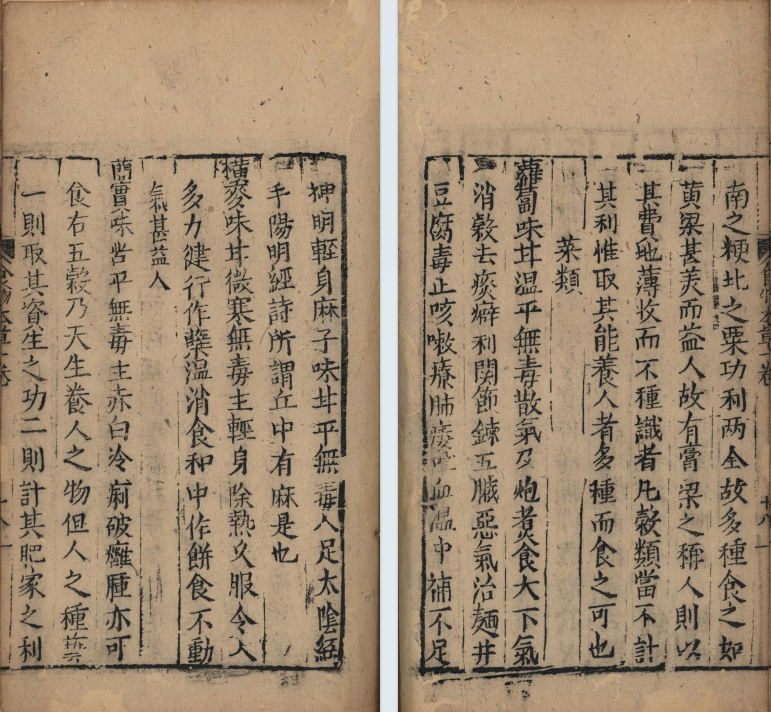 神明輕身麻子味甘平無毒入足太陰經
手陽明經詩所謂丘中有麻是也
穬麥味甘微寒無毒主輕身除熱久服令人
多力健行作糵溫消食和中作餅食不動
氣甚益人
實味苦平無毒主赤白冷痢破癰腫亦可
食右五穀乃天生養人之物但人之種藝
一則取其資生之功二則計其肥家之利
南之粳北之粟功利两全故多種食之如
黄粱甚美而益人故有膏粱之稱人則以
其費地薄收而不種識者凡穀類當不計
其利惟取其能養人者多種而食之可也
菜類
蘿蔔味甘溫平無毒散氣及炮煮食大下氣
消穀去痰癖利関節鍊五臟惡氣治麵并
豆腐毒止咳嗽療肺痿吐血溫中補不足